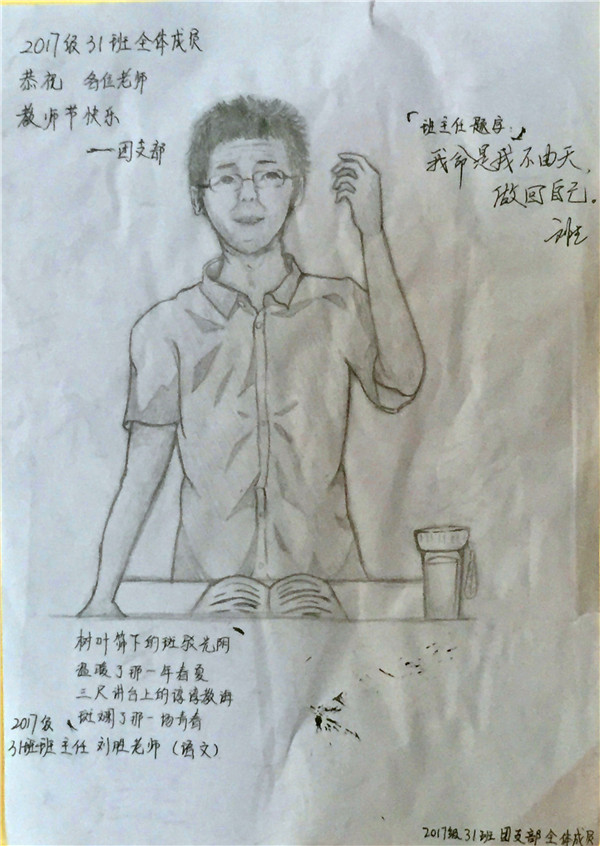 2017级31班全体成员
恭祝 各位老师
教师节快乐
——团支部
「班主任题字：」
我命是我不由天，
做回自己。
树叶筛下的斑驳光阴
温暖了那一年春夏
三尺讲台上的谆谆教诲
斑斓了那一场青春
2017级
31班班主任 刘胜老师（语文）
2017级31班团支部全体成员